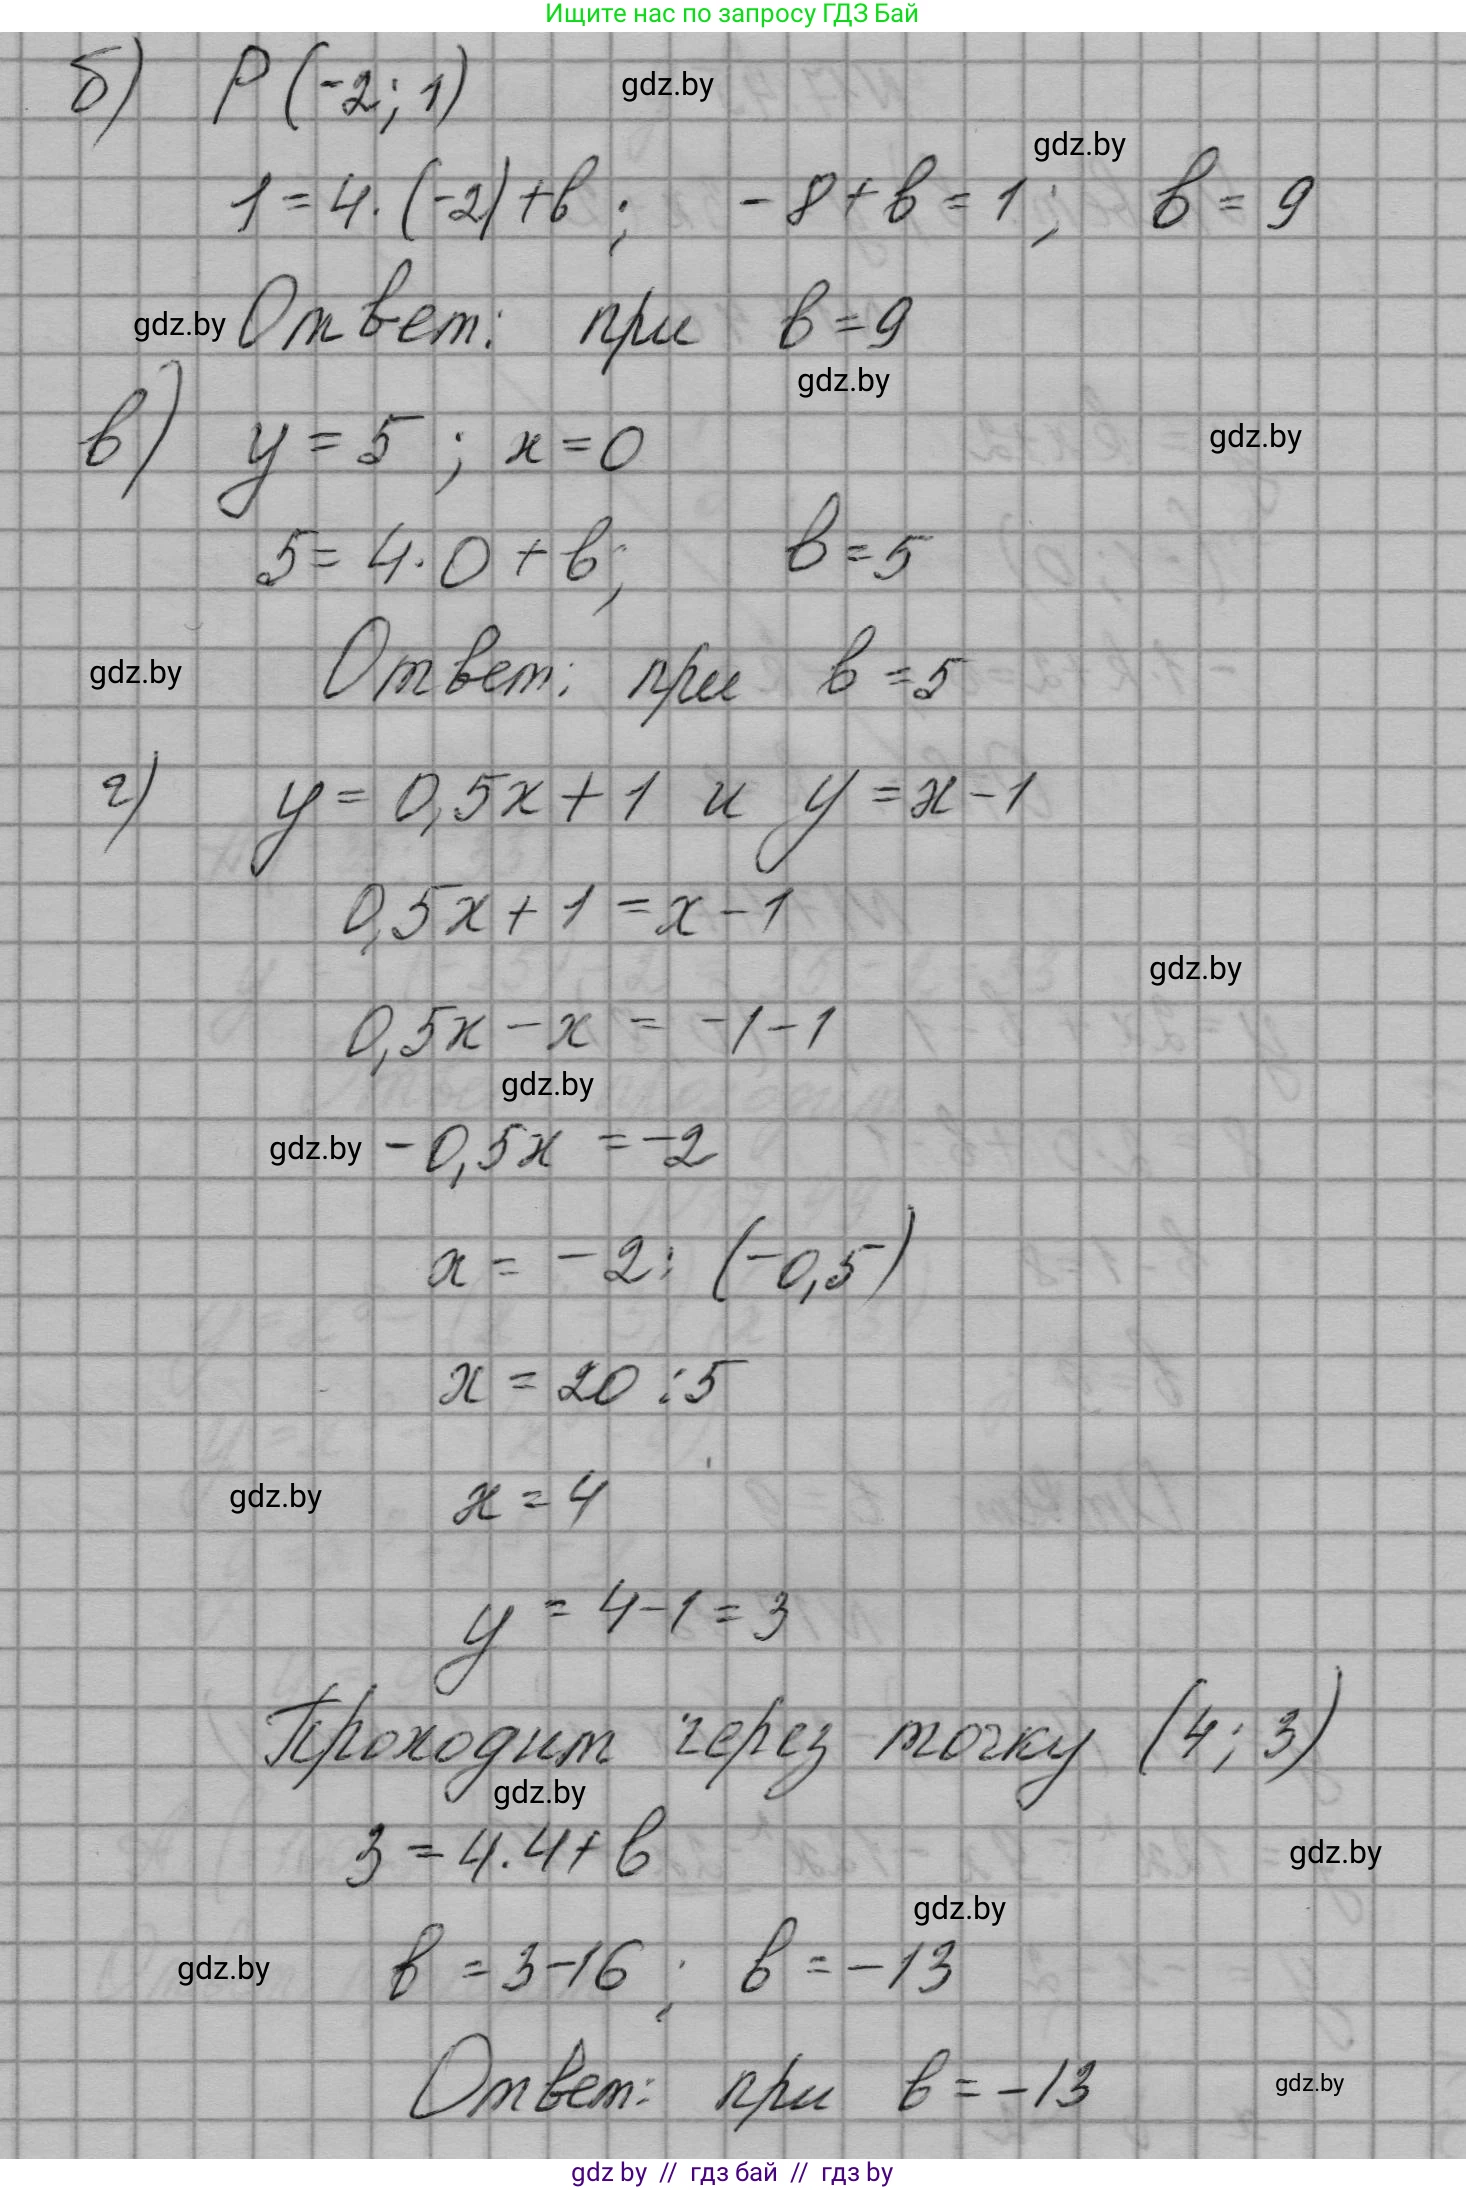 Ищите нас по запросу ГДЗ Бай
б) P(-2; 1)
gdz.by
gdz.by
1=4·(-2)+b; -8+b=1; b=9
gdz.by Ответ: при b=9
gdz.by
в) y=5; x=0
gdz.by
5=4·0+b; b=5
gdz.by Ответ: при b=5
г) y=0,5x+1 и y=x-1
0,5x+1=x-1
gdz.by
0,5x-x=-1-1
gdz.by
gdz.by -0,5x=-2
x=-2:(-0,5)
x=20:5
gdz.by x=4
y=4-1=3
Проходит через точку (4; 3)
gdz.by
3=4·4+b gdz.by
gdz.by
gdz.by b=3-16; b=-13
Ответ: при b=-13 gdz.by
gdz by // гдз бай // гдз by